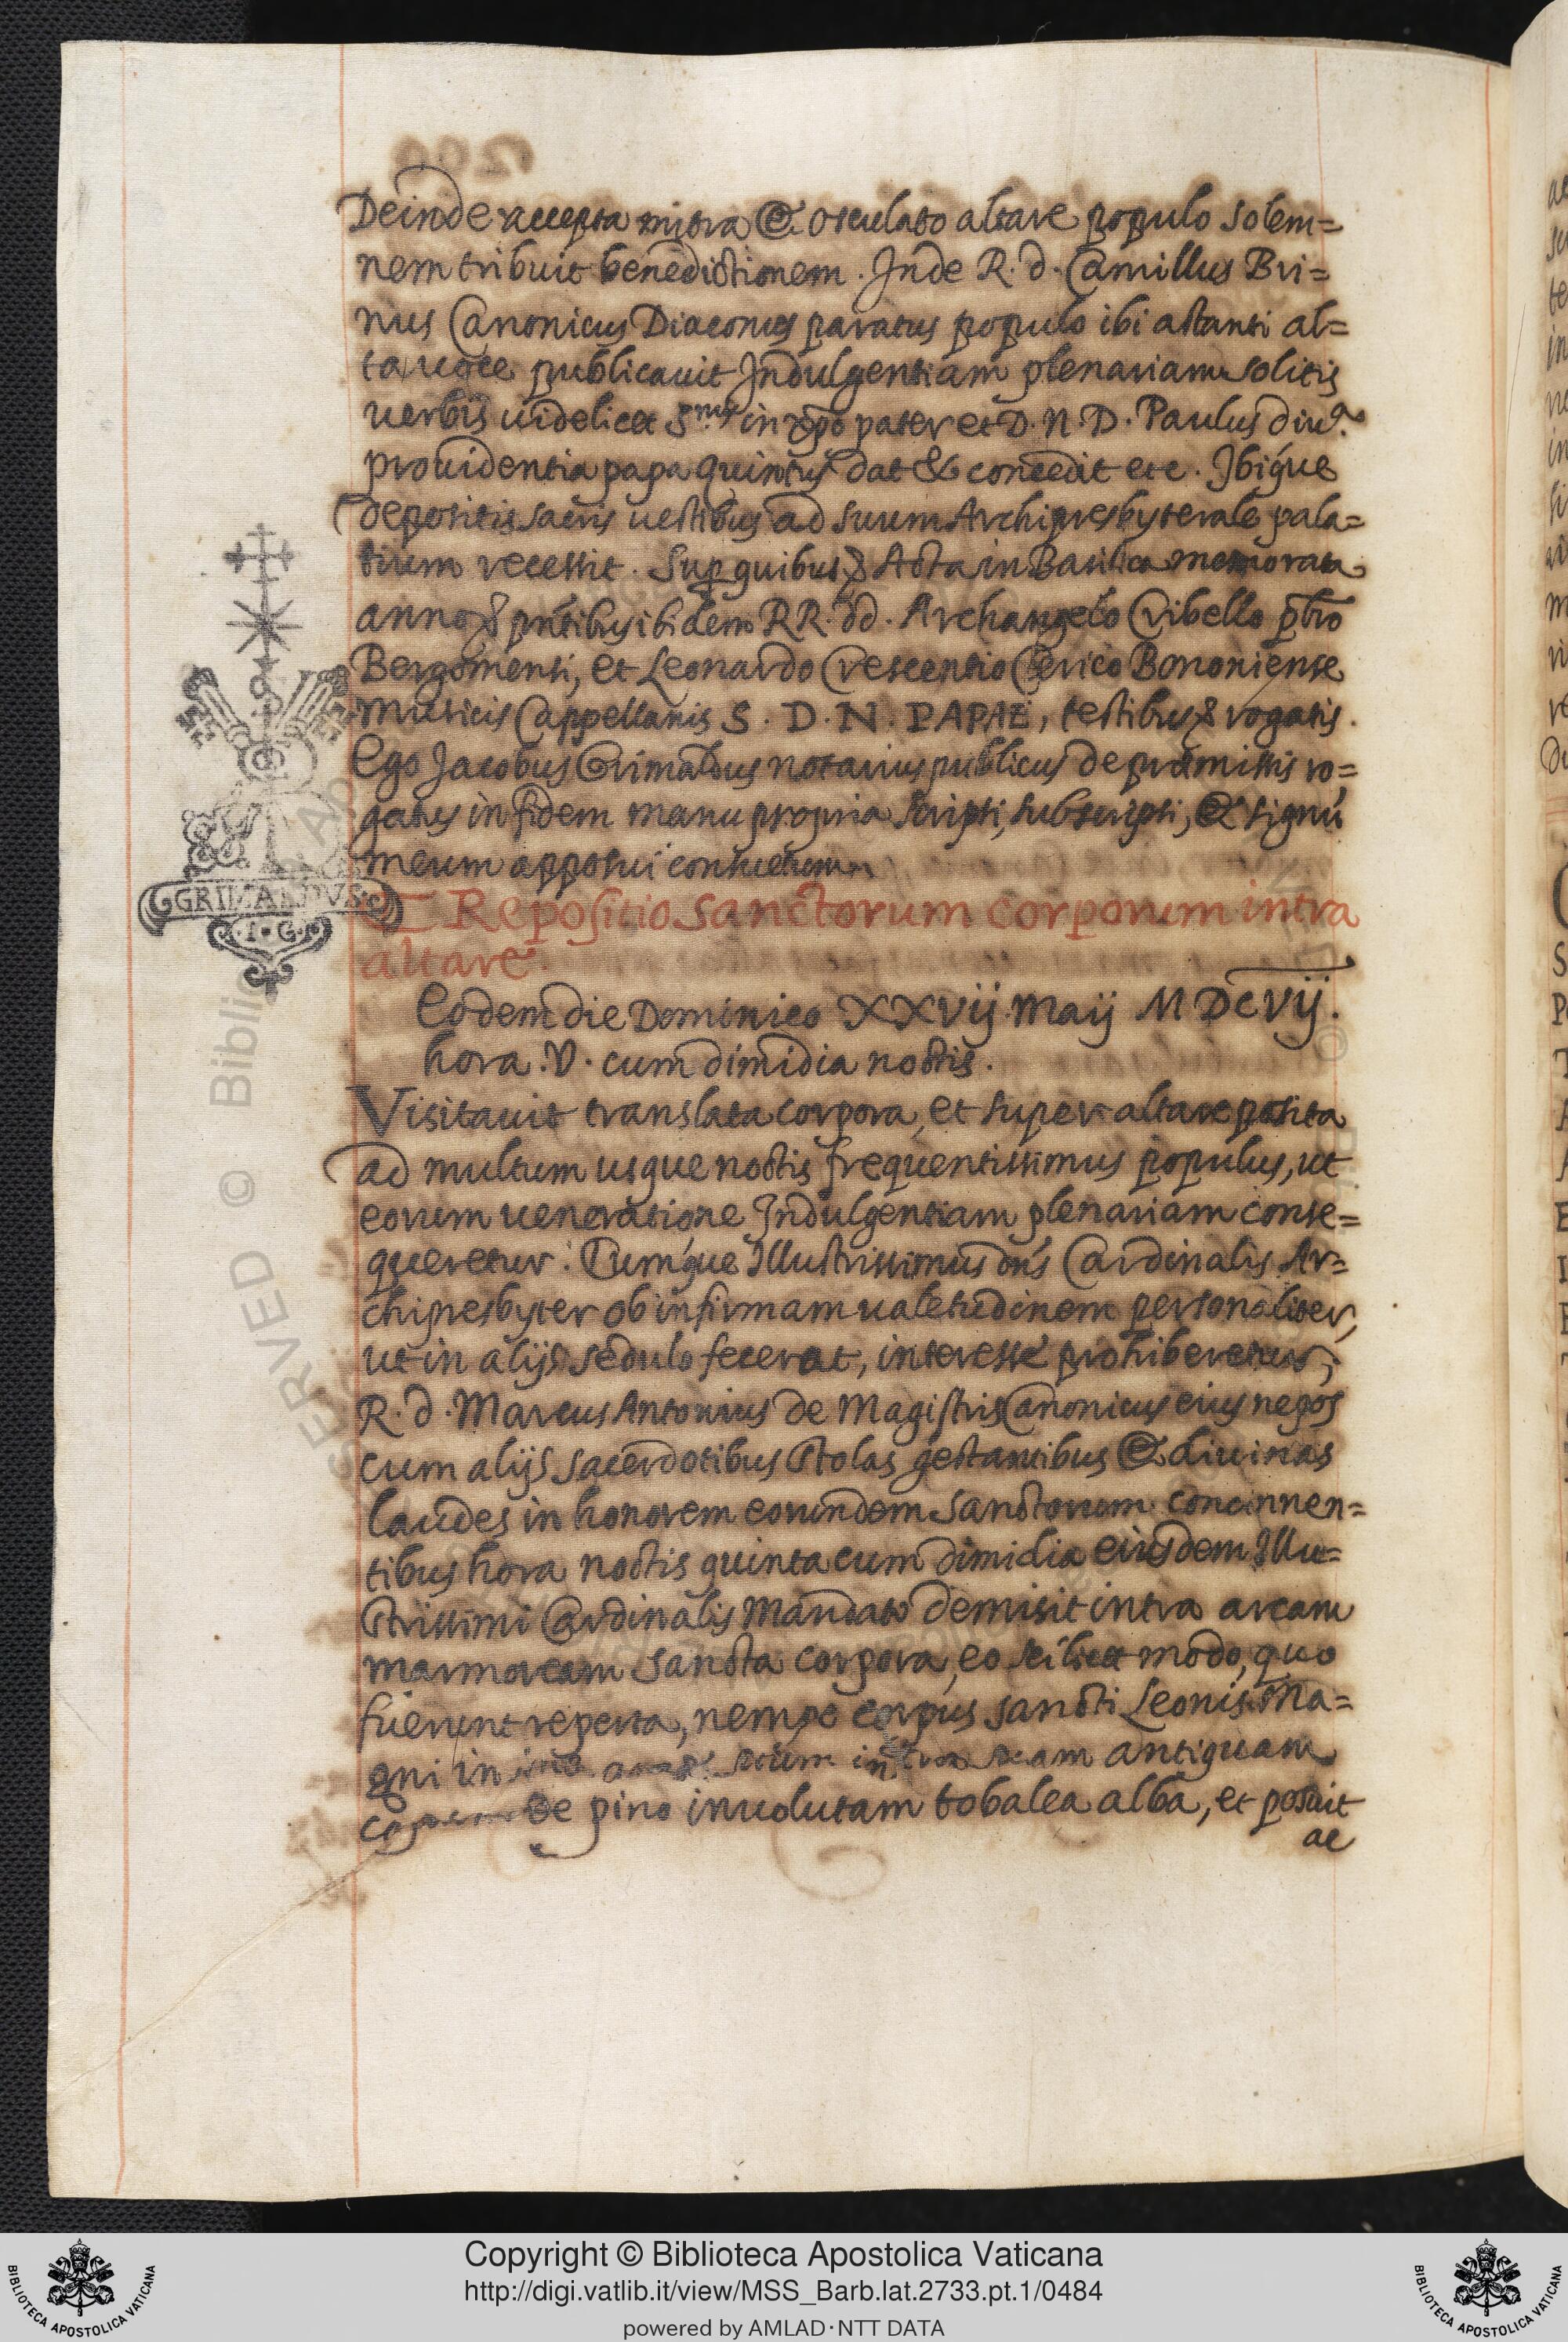 Deinde accepta mitra & osculato altare populo solem=
nem tribuit benedictionem. Inde R. d. Camillus Bri=
nus Canonicus Diaconus paratus populo ibi astanti al=
ta uoce publicauit Indulgentiam plenariam solitis
uerbis uidelicet S.mus in xpo pater et D. N. D. Paulus diu.a
prouidentia papa quintus dat & concedit etc. Ibique
depositis sacris uestibus ad suum Archipresbyterale pala=
tium recessit. Sup quibus & Acta in Basilica memorata
anno & pntibus ibidem RR. dd. Archangelo Cribello pbro
Bergomensi, et Leonardo Crescentio Clerico Bononiense
musicis Cappellanis S. D. N. PAPAE, testibus & rogatis.
Ego Jacobus Grimaldus notarius publicus de praemissis ro=
gatus in fidem manu propria scripsi, subscripsi, & signu
meum apposui consuetum
GRIMALDVS
I. G.
Repositio Sanctorum Corporum intra
altare.
Eodem die Dominico XXVij. Maij MDCVij.
hora. V. cum dimidia noctis.
Visitauit translata corpora, et super altare posita
ad multum usque noctis frequentissimus populus, ut
eorum ueneratione Indulgentiam plenariam conse=
queretur. Cumque Illustrissimus dns Cardinalis Ar=
chipresbyter ob infirmam ualetudinem personaliter,
ut in alijs sedulo fecerat, interesse prohiberetur,
R. d. Marcus Antonius de Magistris Canonicus eius nepos
cum alijs sacerdotibus stolas gestantibus & diuinas
laudes in honorem eorundem Sanctorum concinnen=
tibus hora noctis quinta cum dimidia eiusdem Illu=
strissimi Cardinalis mandato demisit intra arcam
marmoream sancta corpora, eo scilicet modo, quo
fuerunt reperta, nempe corpus sancti Leonis Ma=
gni in antiquam
de pino inuolutam tobalea alba, et posuit
ac
Copyright © Biblioteca Apostolica Vaticana
http://digi.vatlib.it/view/MSS_Barb.lat.2733.pt.1/0484
powered by AMLAD·NTT DATA
BIBLIOTECA APOSTOLICA VATICANA
BIBLIOTECA APOSTOLICA VATICANA